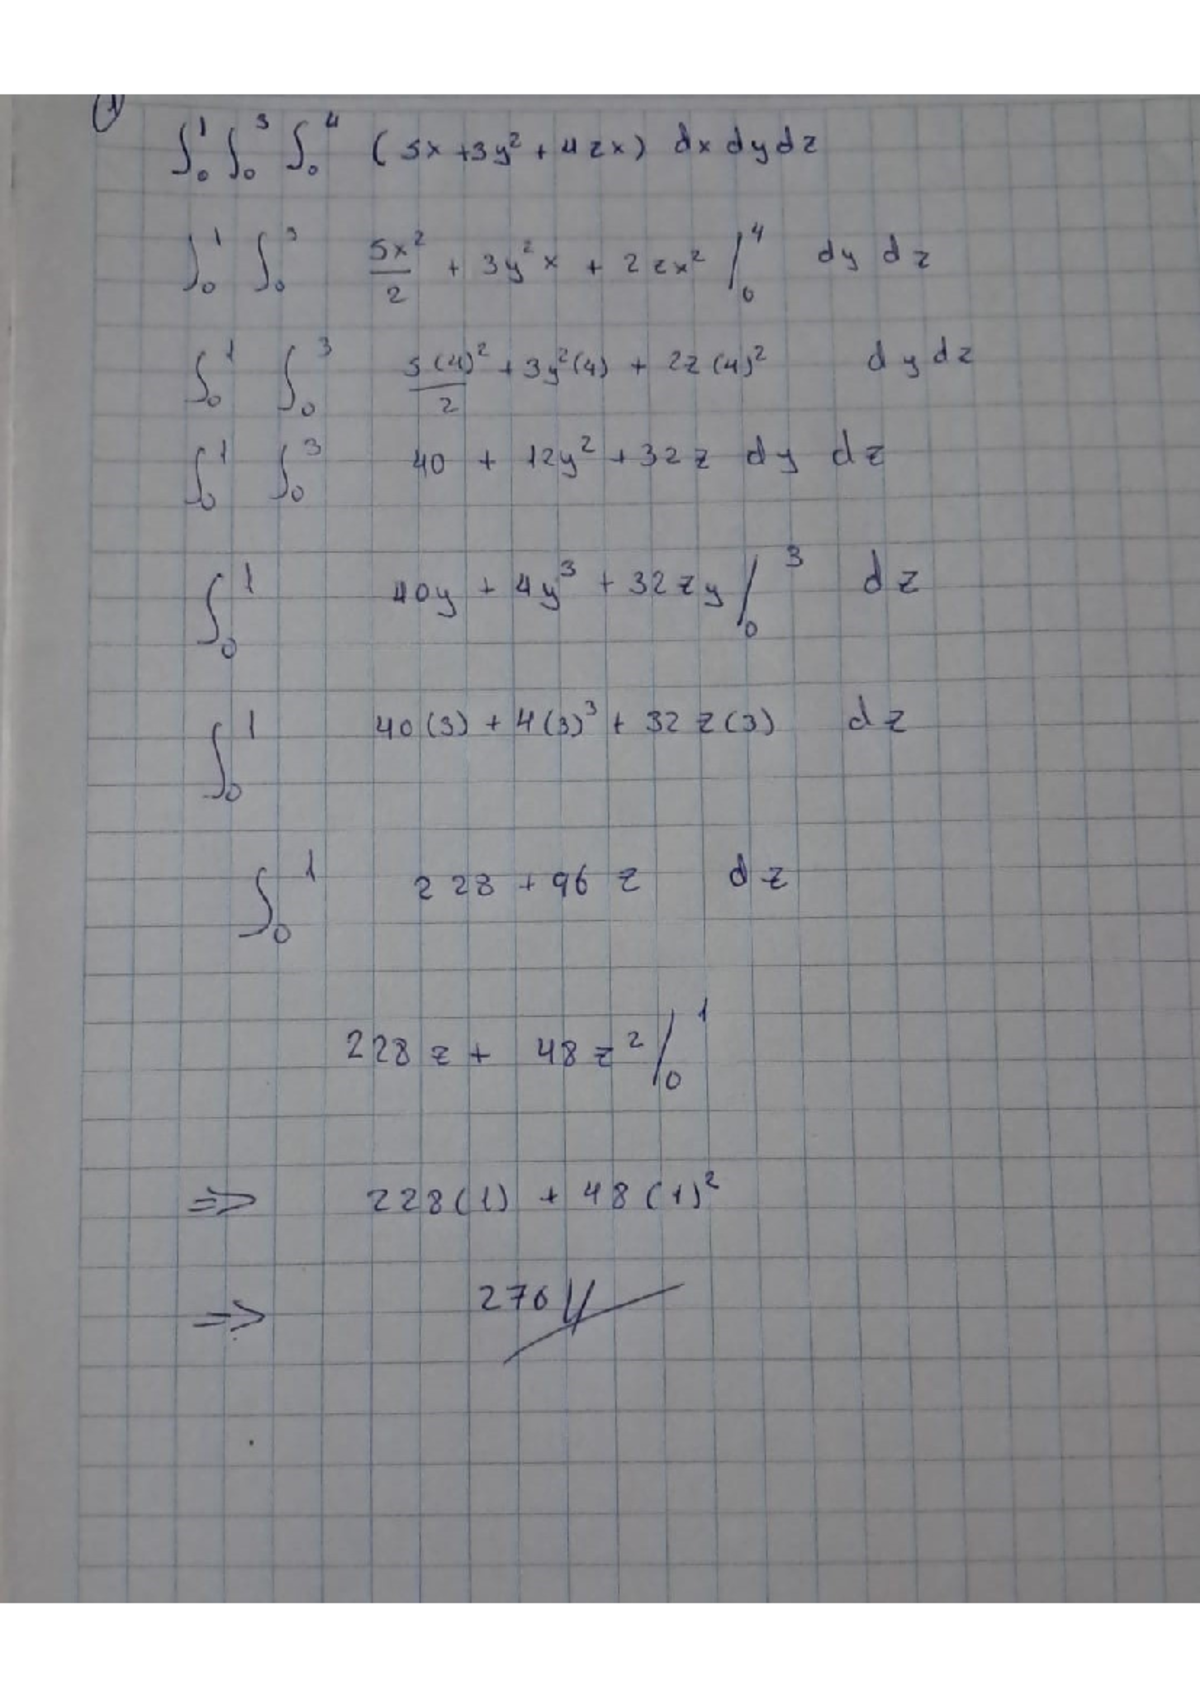 ①
∫₀¹ ∫₀³ ∫₀⁴ (5x + 3y² + 4zx) dx dy dz
∫₀¹ ∫₀³ 5x²/2 + 3y²x + 2zx² |₀⁴ dy dz
∫₀¹ ∫₀³ 5(4)²/2 + 3y²(4) + 2z(4)² dy dz
∫₀¹ ∫₀³ 40 + 12y² + 32z dy dz
∫₀¹ 40y + 4y³ + 32zy |₀³ dz
∫₀¹ 40(3) + 4(3)³ + 32z(3) dz
∫₀¹ 228 + 96z dz
228z + 48z² |₀¹
⇒ 228(1) + 48(1)²
⇒ 276 //